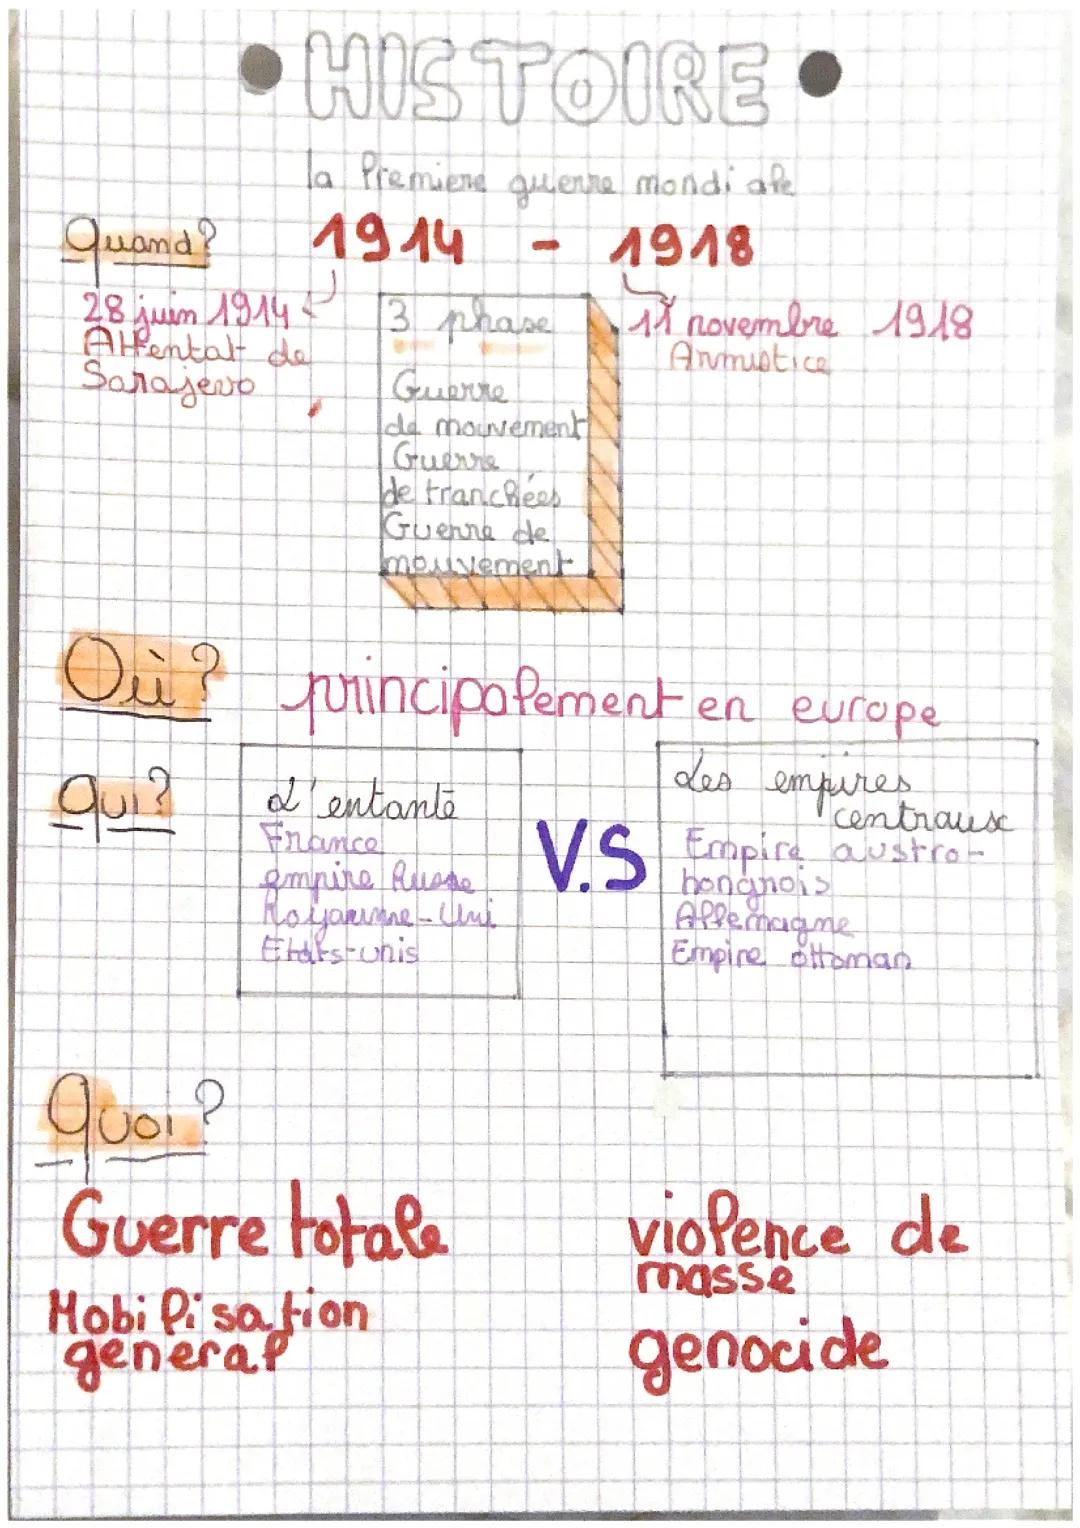 • HISTOIRE •
la Premiere guerre mondiale
Quand?
1914 - 1918
28 juin 1914
Attentat de
Sarajevo
3 phase
Guerre
de mouvement
Guerre
de tranchées
Guerre de
mouvement
11 novembre 1918
Armistice
Où?
principalement en europe
Qui?
L'entante
France
empire Russe
Royaume-Uni
Etats-unis
V.S
Les empires
centraux
Empire austro-
hongrois
Allemagne
Empire ottoman
Quoi?
Guerre totale
Mobilisation
general
violence de
masse
genocide